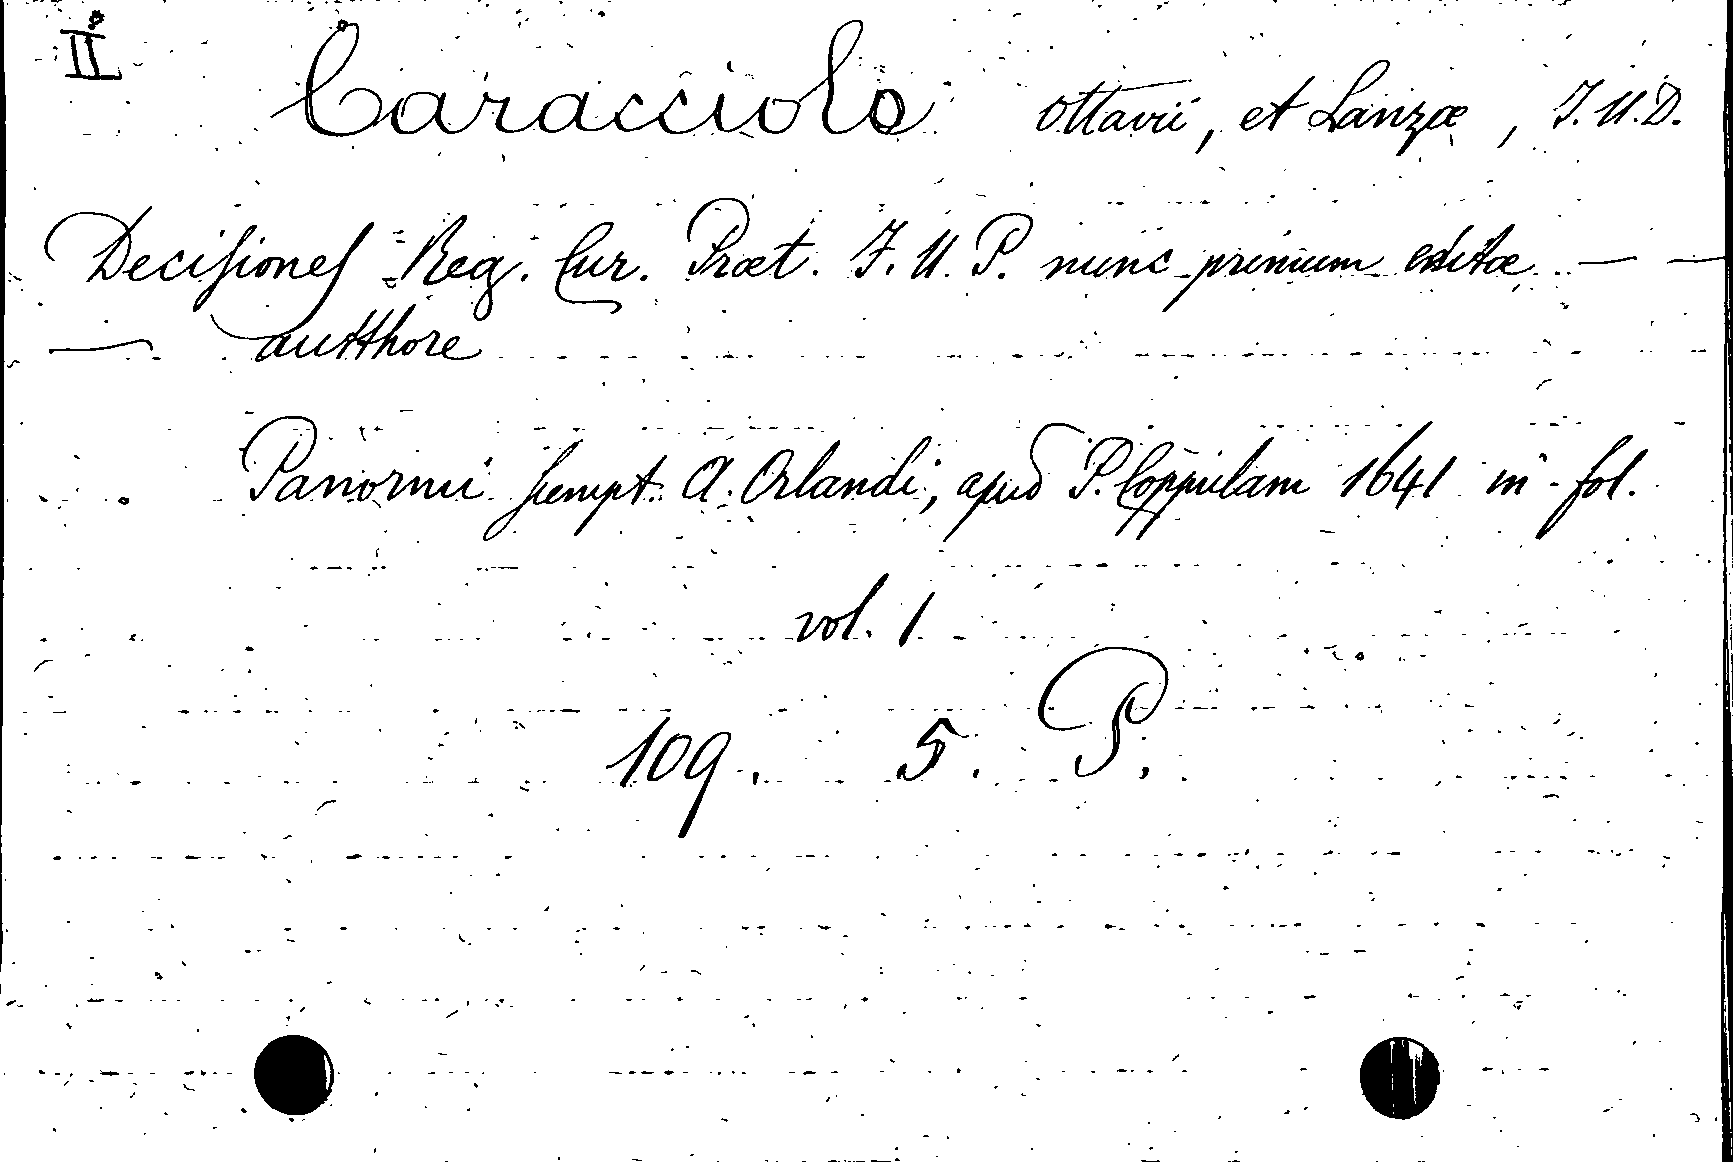 II
Caracciolo Ottavii, et Lanzæ, J.U.D.
Decisiones Reg. Cur. Præt. F. U. P. nunc primum editæ — —
— autthore
Panormi sumpt. A. Orlandi, apud P. Coppulam 1641 in-fol.
vol. 1
109. 5. P.